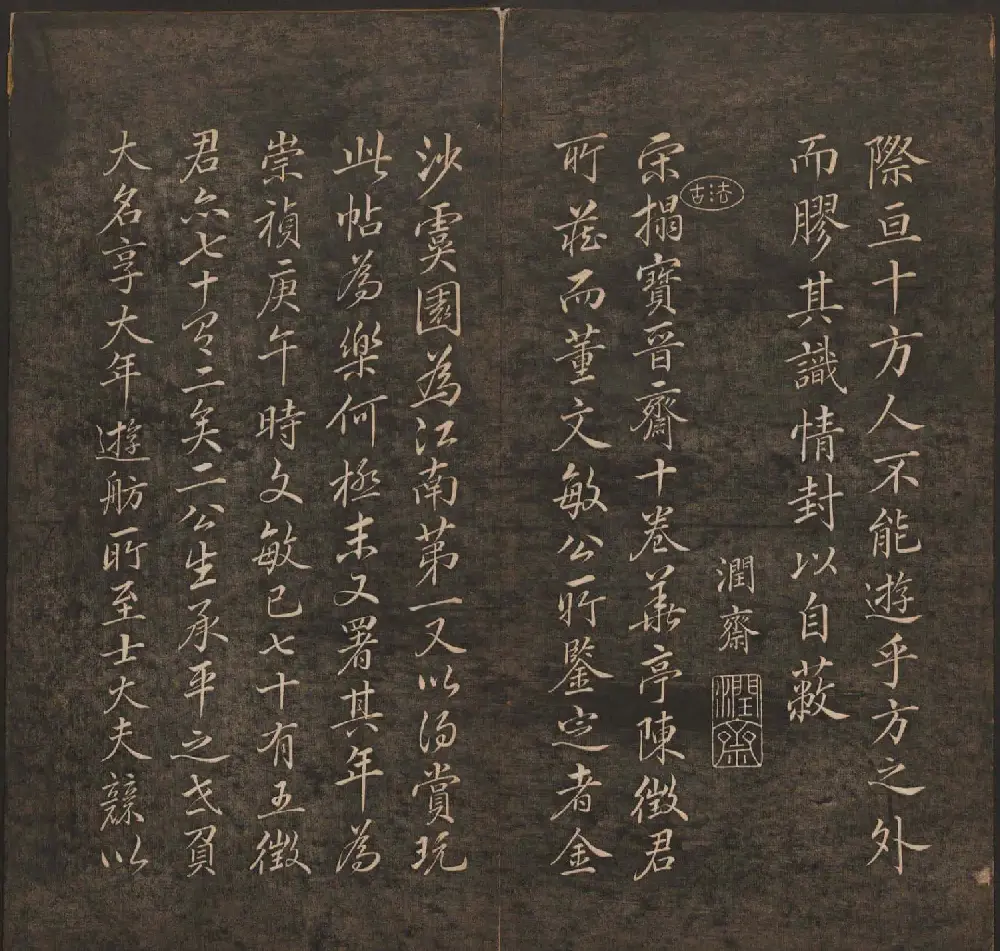 際亘十方人不能遊乎方之外
而膠其識情封以自蔽
潤齋
潤齋
法古
宋搨寶晉齋十卷華亭陳徵君
所藏而董文敏公所鑒定者金
沙虞園為江南第一又以得賞玩
此帖為樂何極末又署其年為
崇禎庚午時文敏已七十有五徵
君亦七十有二矣二公生承平之世負
大名享大年遊舫所至士大夫以